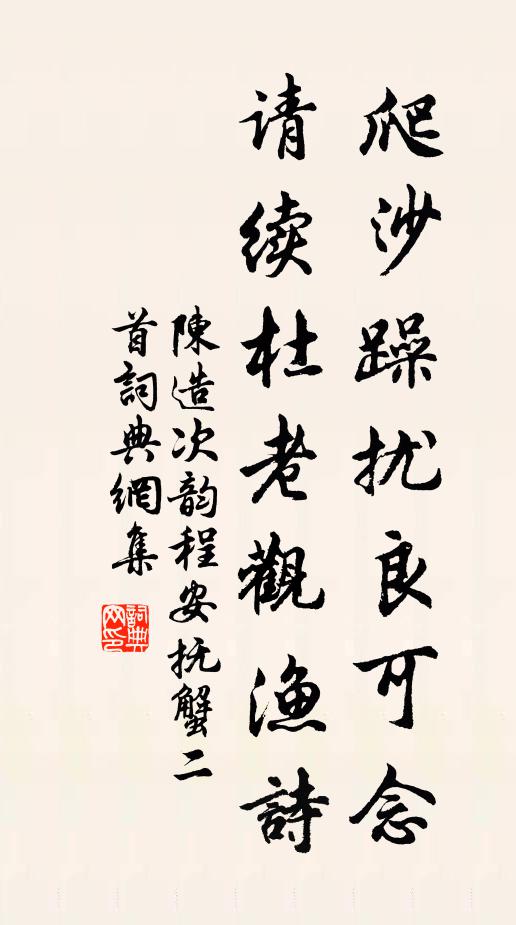 爬沙躁扰良可念
请续杜老觀渔詩
陳造次韵程安抚蟹二
首詞典網集
詞典网印